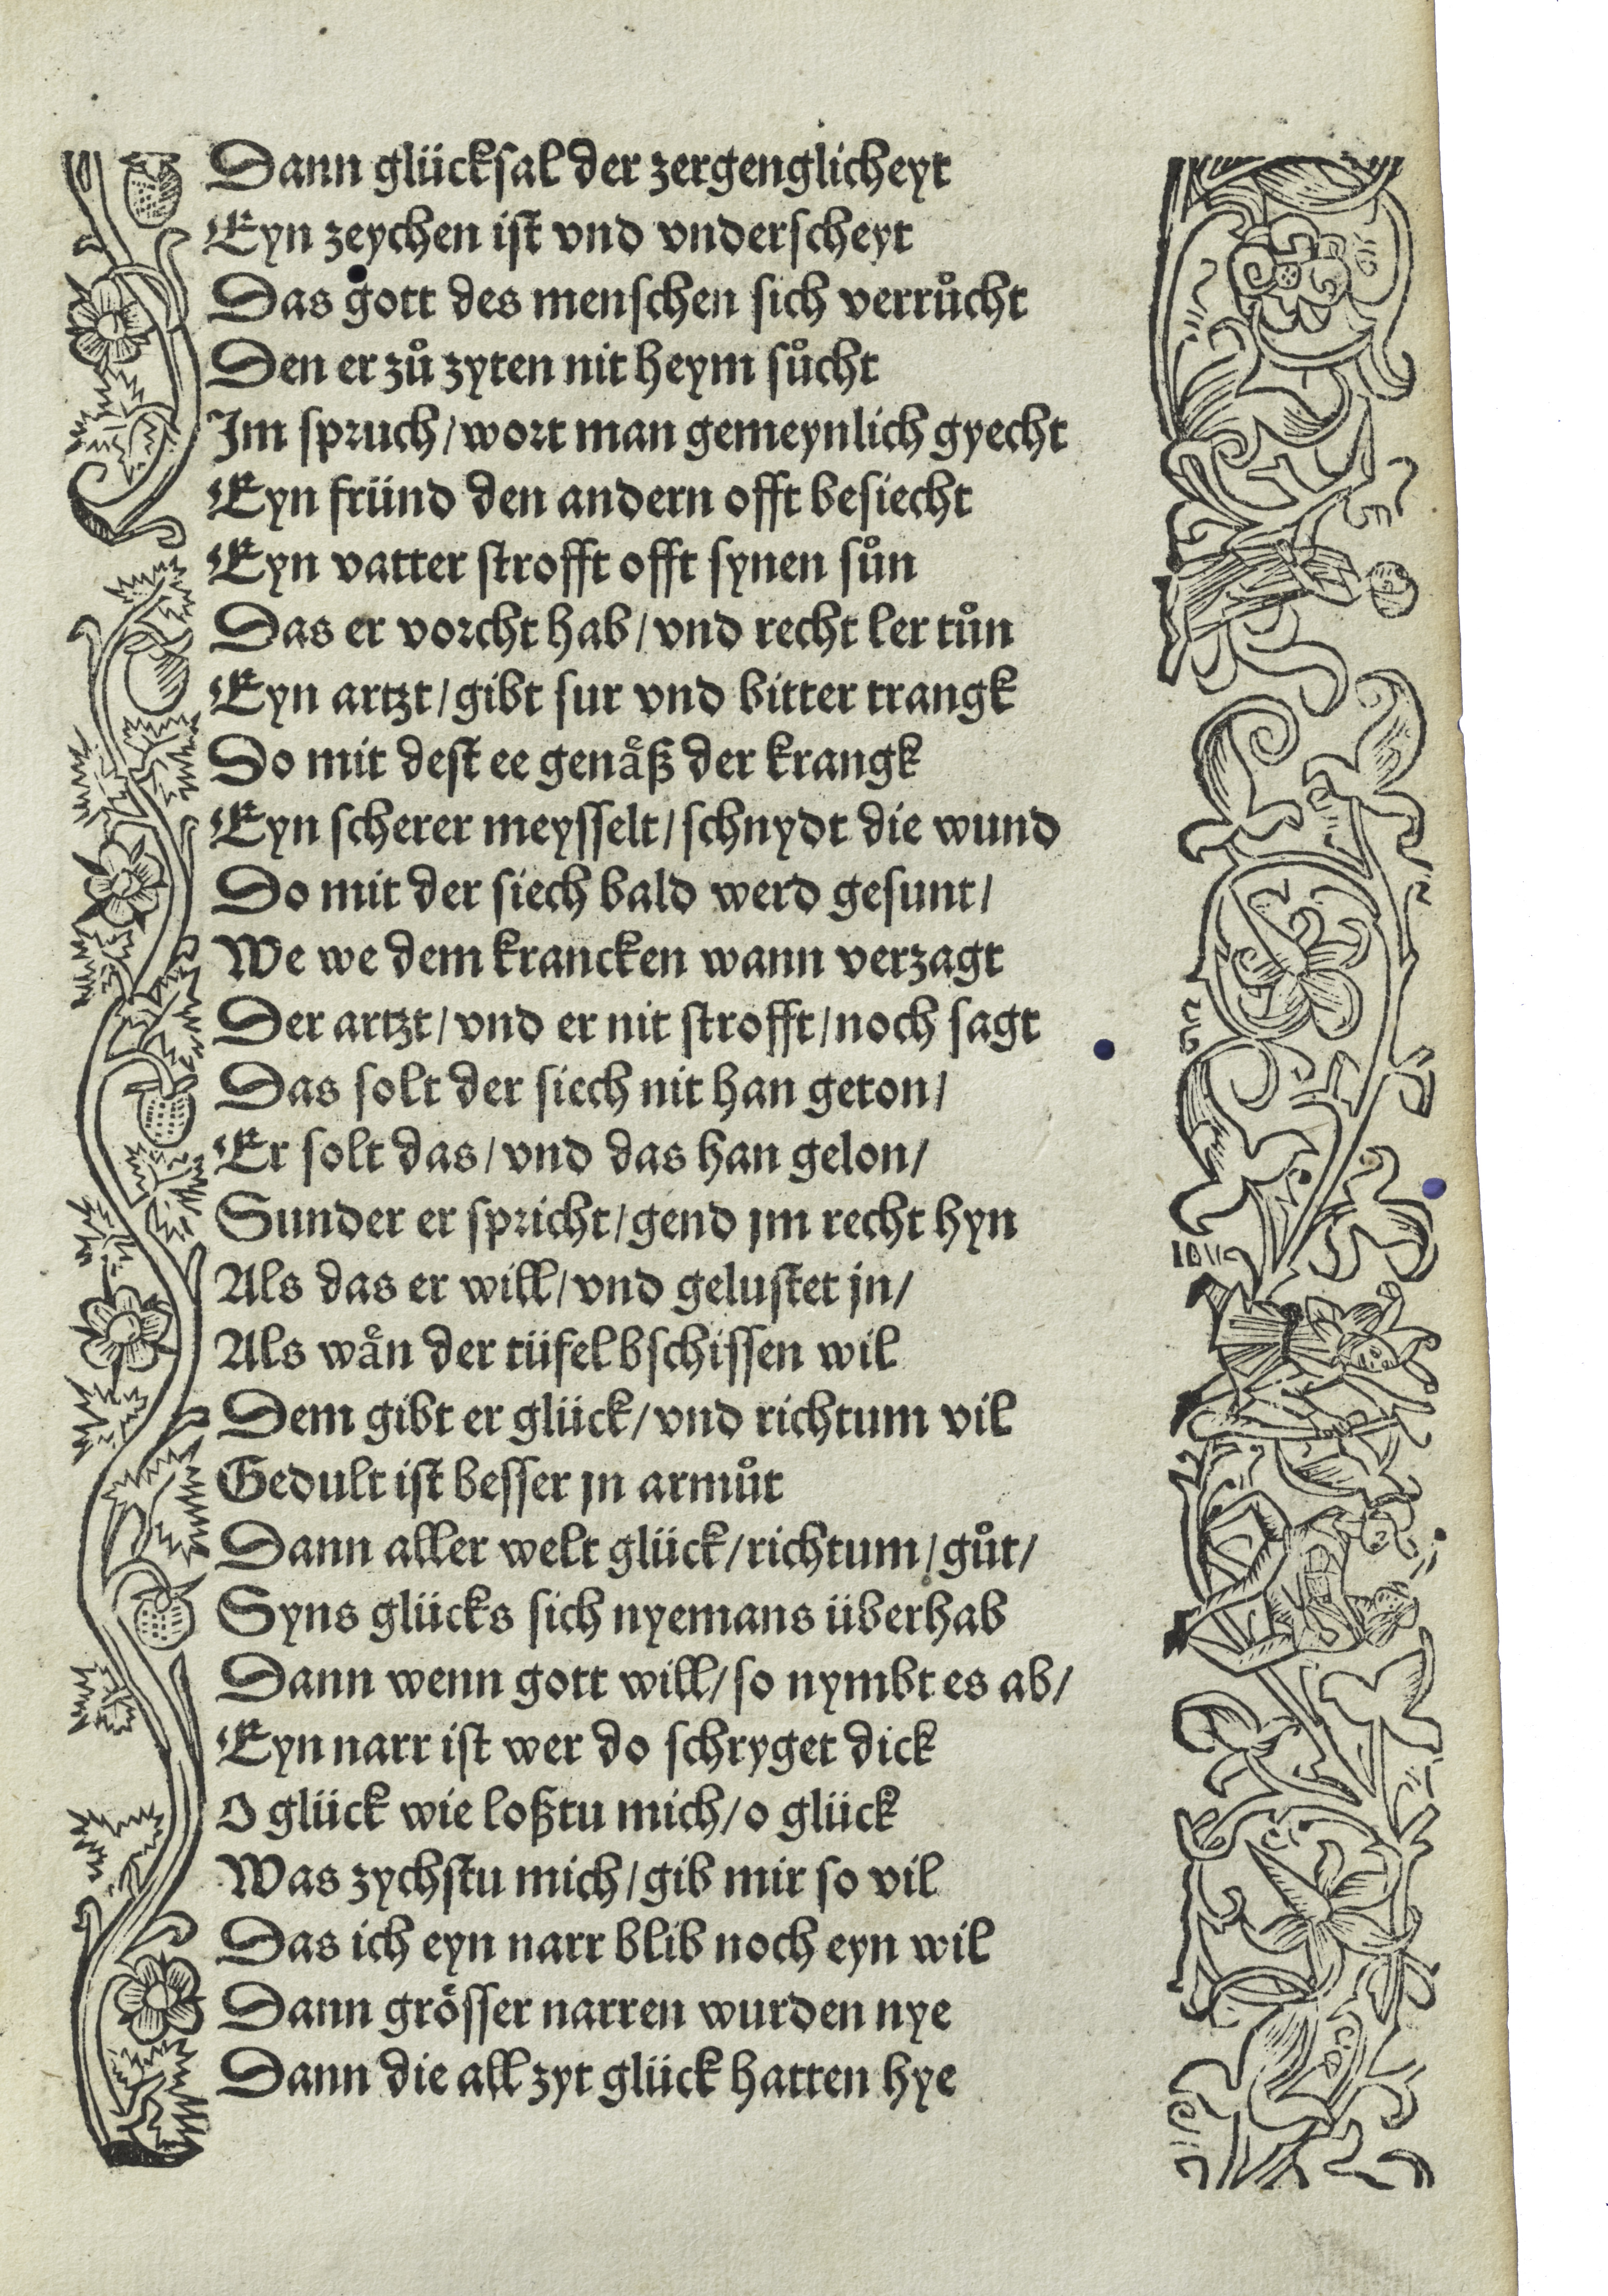 Dann glücksal der zergenglicheyt
Eyn zeychen ist vnd vnderscheyt
Das gott des menschen sich verrůcht
Den er zů zyten nit heym sůcht
Jm spruch/wort man gemeynlich gyecht
Eyn fründ den andern offt besiecht
Eyn vatter strofft offt synen sůn
Das er vorcht hab/vnd recht ler tůn
Eyn artzt/gibt sur vnd bitter trangk
Do mit dest ee genåß der krangk
Eyn scherer meysselt/schnydt die wund
Do mit der siech bald werd gesunt/
We we dem krancken wann verzagt
Der artzt/vnd er nit strofft/noch sagt
Das solt der siech nit han geton/
Er solt das/vnd das han gelon/
Sunder er spricht/gend jm recht hyn
Als das er will/vnd gelustet jn/
Als wån der tüfel bschissen wil
Dem gibt er glück/vnd richtum vil
Gedult ist besser jn armůt
Dann aller welt glück/richtum/gůt/
Syns glücks sich nyemans überhab
Dann wenn gott will/so nymbt es ab/
Eyn narr ist wer do schryget dick
O glück wie loßtu mich/o glück
Was zychstu mich/gib mir so vil
Das ich eyn narr blib noch eyn wil
Dann grösser narren wurden nye
Dann die all zyt glück hatten hye